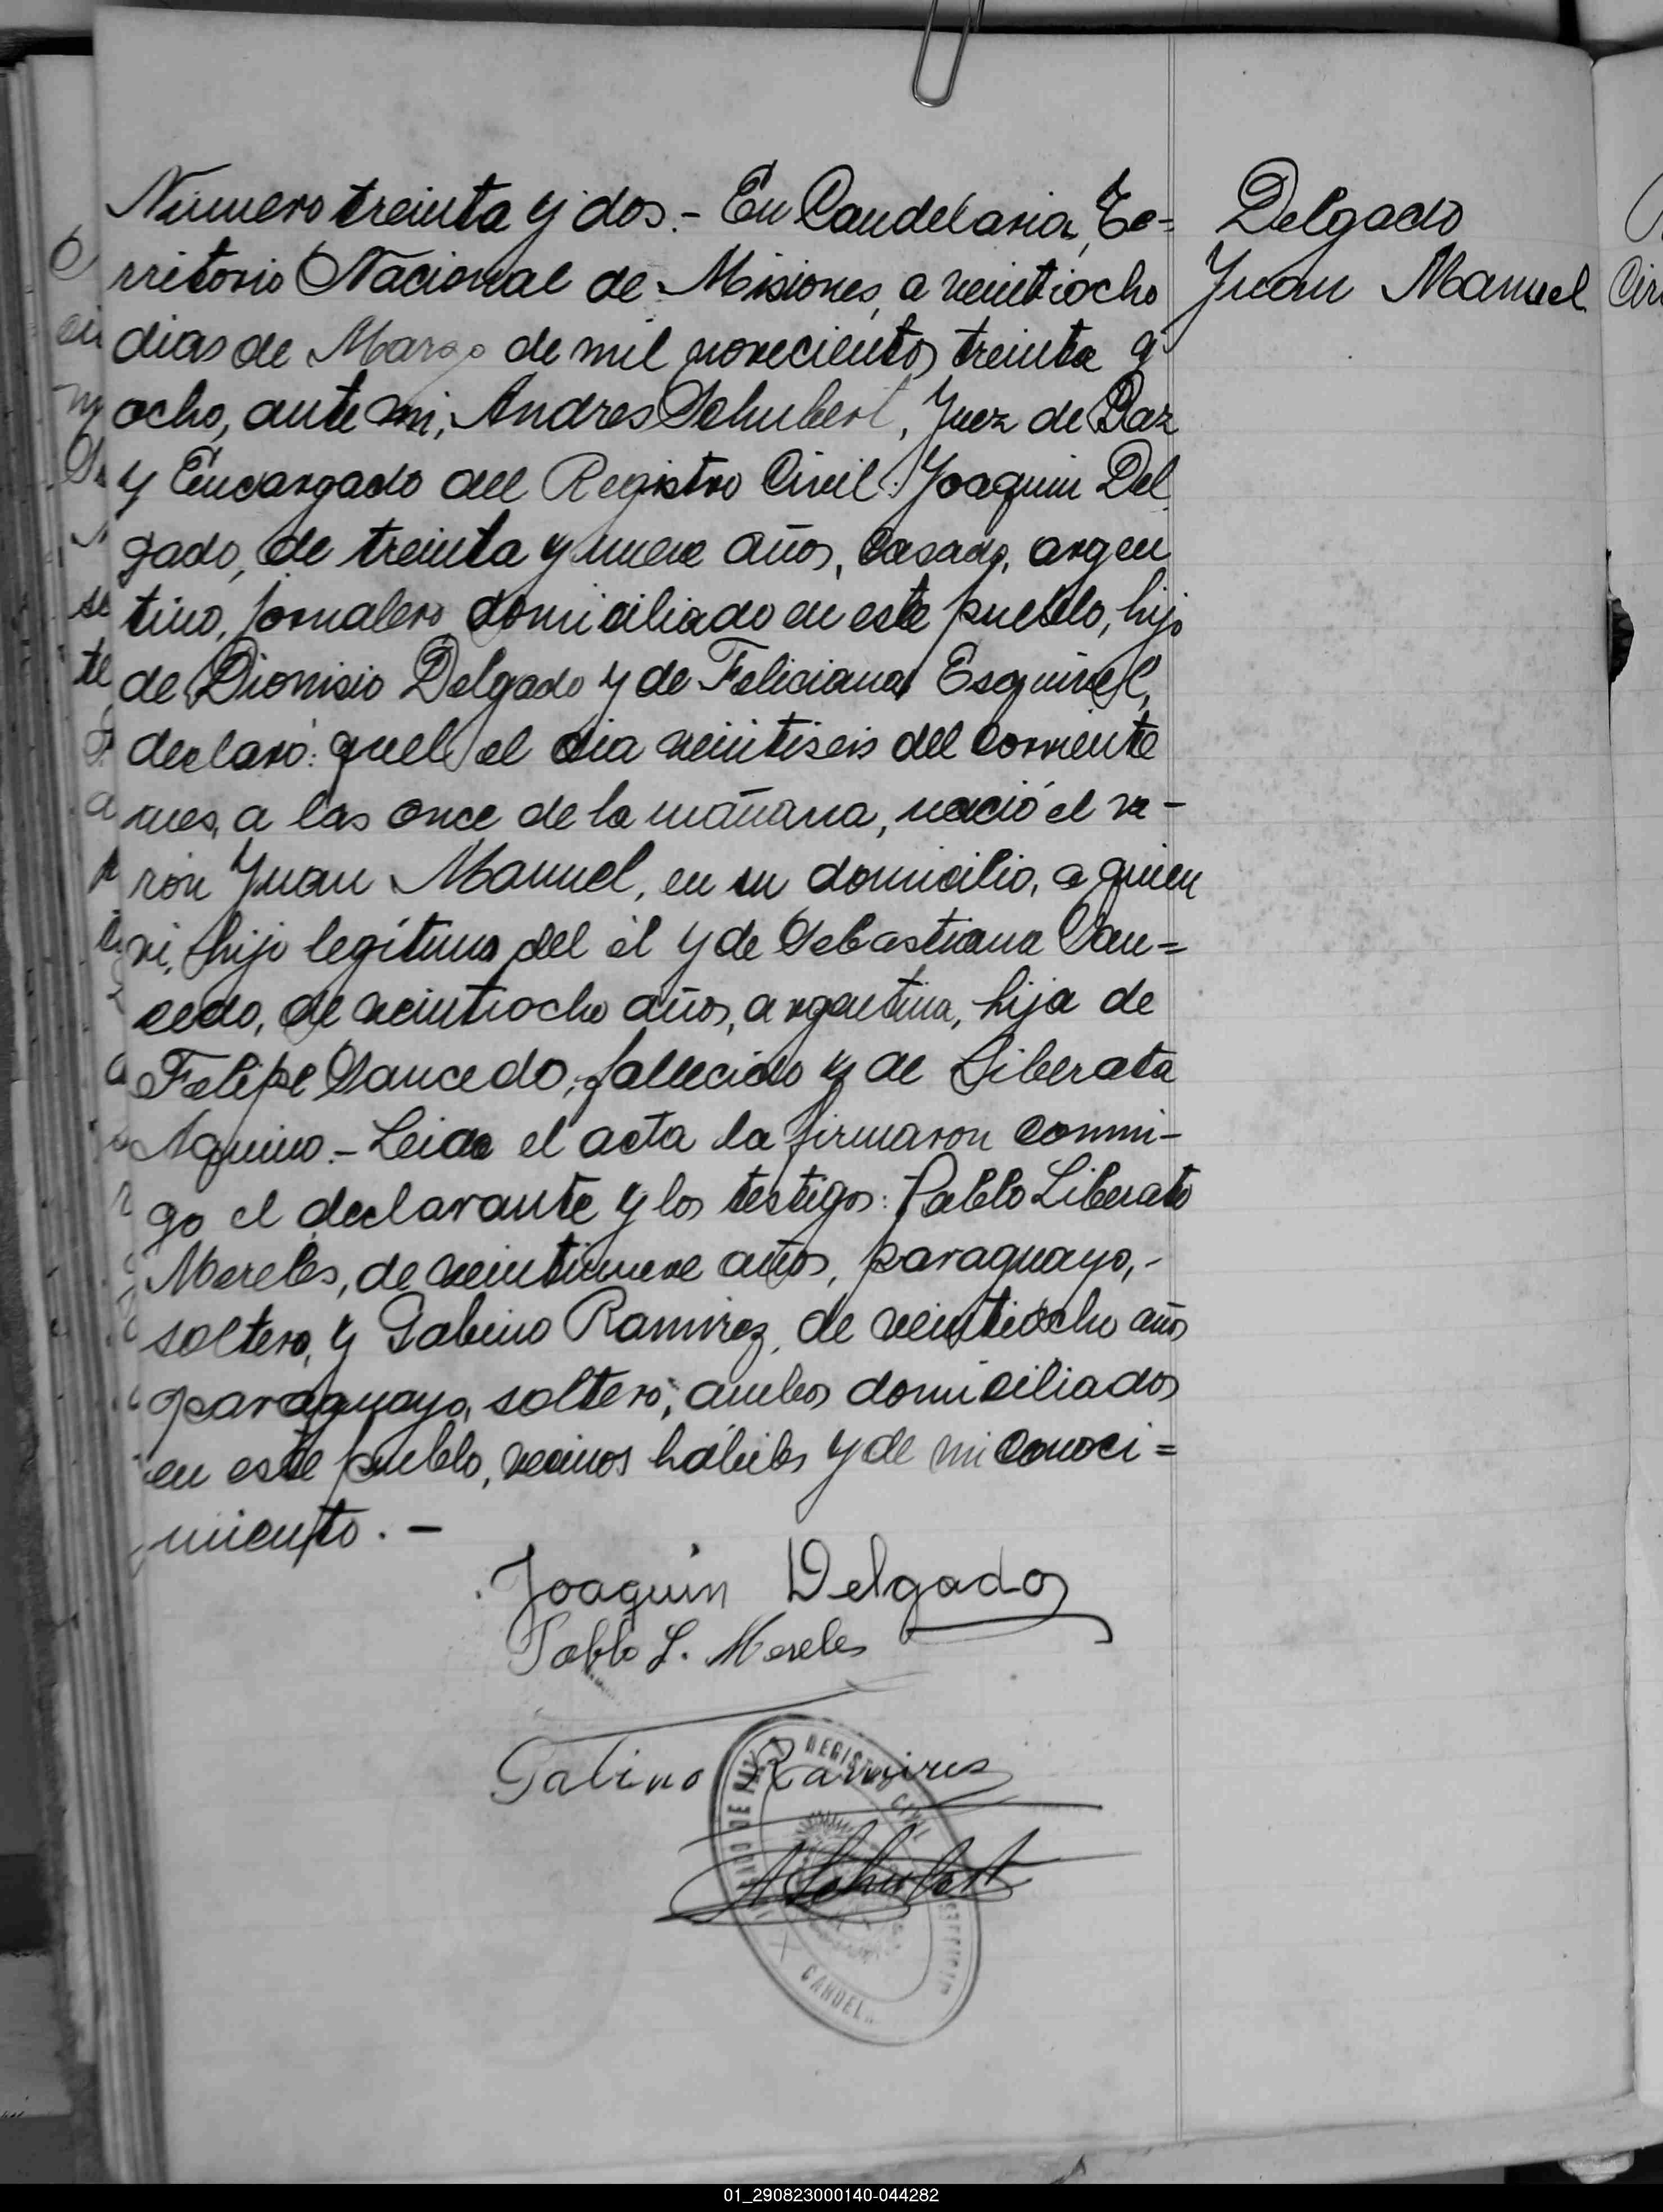 Número treinta y dos.- En Candelaria, Te=
rritorio Nacional de Misiones, a veintiocho
dias de Marzo de mil novecientos treinta y
ocho, ante mi, Andres Schubert, Juez de Paz
y Encargado del Registro Civil: Joaquin Del
gado, de treinta y nueve años, casado, argen
tino, jornalero domiciliado en este pueblo, hijo
de Dionisio Delgado y de Feliciana Esquivel,
declaró: que el dia veintiseis del corriente
mes, a las once de la mañana, nació el va-
rón Juan Manuel, en su domicilio, a quien
vi, hijo legítimo del él y de Sebastiana Sau=
cedo, de veintiocho años, argentina, hija de
Felipe Saucedo, fallecido y de Liberata
Aquino.- Leida el acta la firmaron conmi-
go el declarante y los testigos: Pablo Liberato
Mereles, de veintinueve años, paraguayo,-
soltero, y Gabino Ramirez, de veintiocho años
paraguayo, soltero; ambos domiciliados
en este pueblo, vecinos hábiles y de mi conoci=
miento.-
Delgado
Juan Manuel
Joaquin Delgado
Pablo L. Mereles
Gabino Ramires
A Schubert
REGISTRO CIVIL
CANDEL
01_290823000140-044282